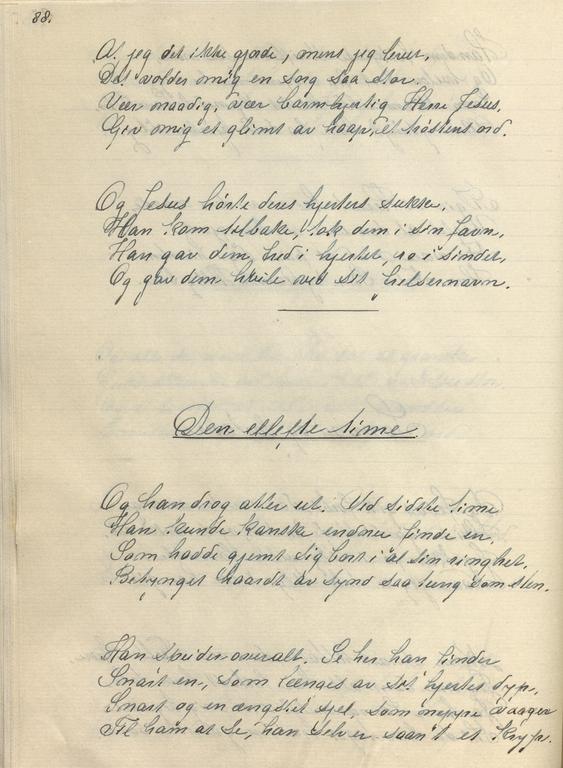 88.
At jeg det ikke gjorde, mens jeg levet,
Det volder mig en sorg saa stor.
Vær naadig, vær barmhjertig Herre Jesus,
Giv mig et glimt av haap, et trøstens ord.
Og Jesus hørte deres hjerters sukke.
Han kom tilbake, tok dem i sin favn.
Han gav dem fred i hjertet, ro i sindet,
Og gav dem hvile ved sit frelsernavn.
Den ellefte time
Og han drog atter ut. Ved sidste time
Han kunde kanske endnu finde en,
Som hadde gjemt sig bort i al sin ringhet,
Betynget haardt av synd saa tung som sten.
Han speider overalt. Se her han finder
Snart en, som længes av sit hjertes dyp,
Snart og en ængstet sjel, som neppe vaager
Til ham at se, han selv er saan't et kryp.